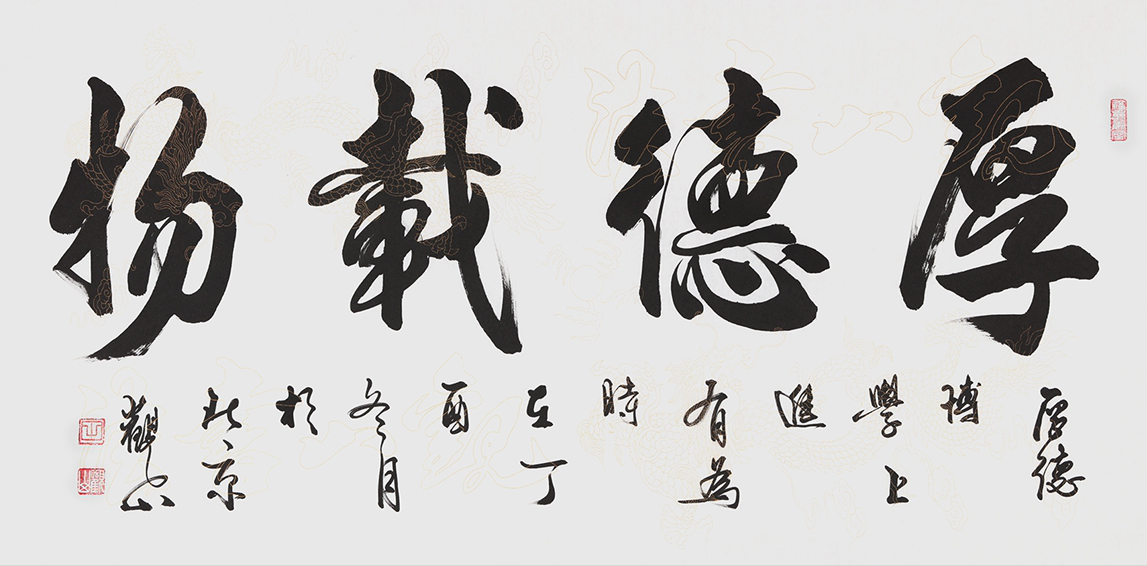 厚德載物
厚德
博
學上
進
有為
時
在丁
酉
冬月
於
北京
觀山